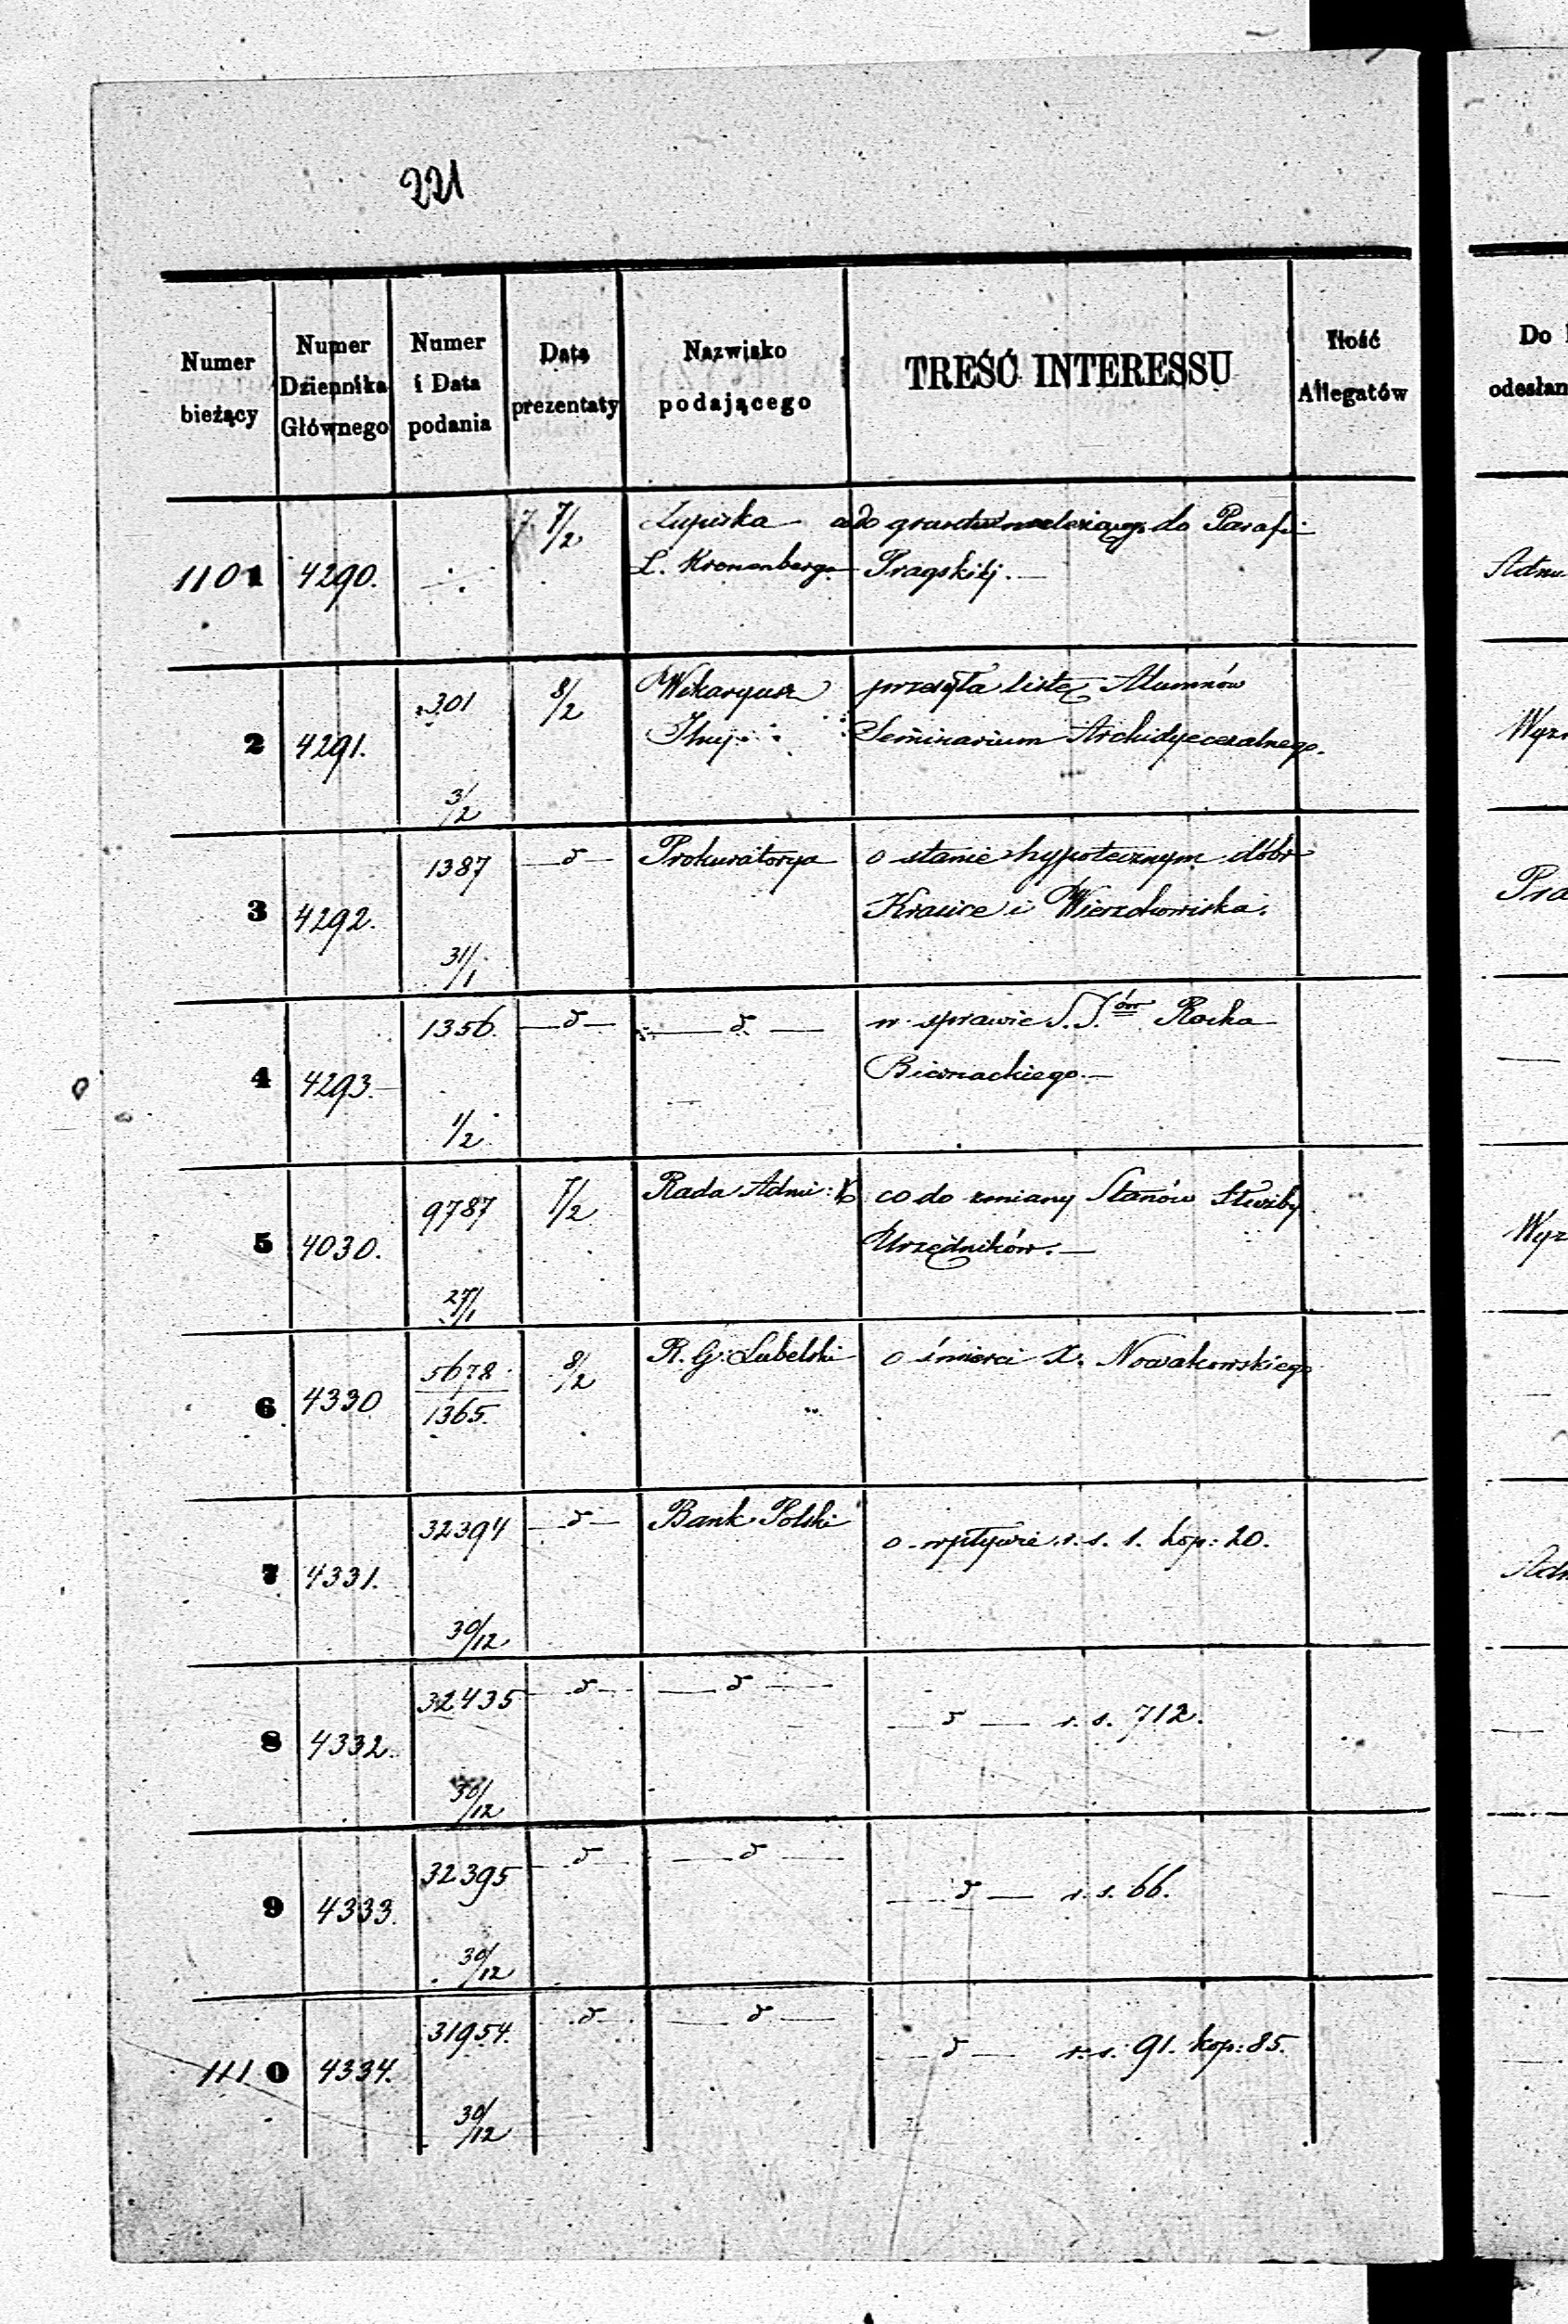 221
Numer bieżący | Numer Dziennika Głównego | Numer i Data podania | Data prezentaty | Nazwisko podającego | TREŚĆ INTERESSU | Ilość Allegatów | Do
odesłan
1101 | 4290. | 7/2 | Łupiska | do Parafii
L. Kronenberga | Pragskiéj.
2 | 4291. | 301 | 8/2 | Wikaryusz | przesyła listę Alumnów
Seminarium Archidyecezalnego.
3/2
3 | 4292. | 1387 | —d— | Prokuratorya | o stanie hypotecznym dóbr
i Wierzchowiska.
31/1
4 | 4293. | 1356. | —d— | —d— | w sprawie S.S.ów Rocha
Biernackiego.—
1/2
5 | 4030. | 9787 | 7/2 | Rada Admi: | co do zmiany Stanów Służby
Urzędników.—
27/1
6 | 4330 | 5678 | 8/2 | R. G. Lubelski | o śmierci X. Nowakowskiego
1365.
7 | 4331. | 32394 | —d— | Bank Polski | o wpływie r. s. 1. kop: 20.
30/12
8 | 4332. | 32435 | —d— | —d— | —d— r. s. 712.
30/12
9 | 4333. | 32395 | —d— | —d— | —d— r. s. 66.
30/12
1110 | 4334. | 31954. | —d— | —d— | —d— r. s. 91. kop: 85.
30/12